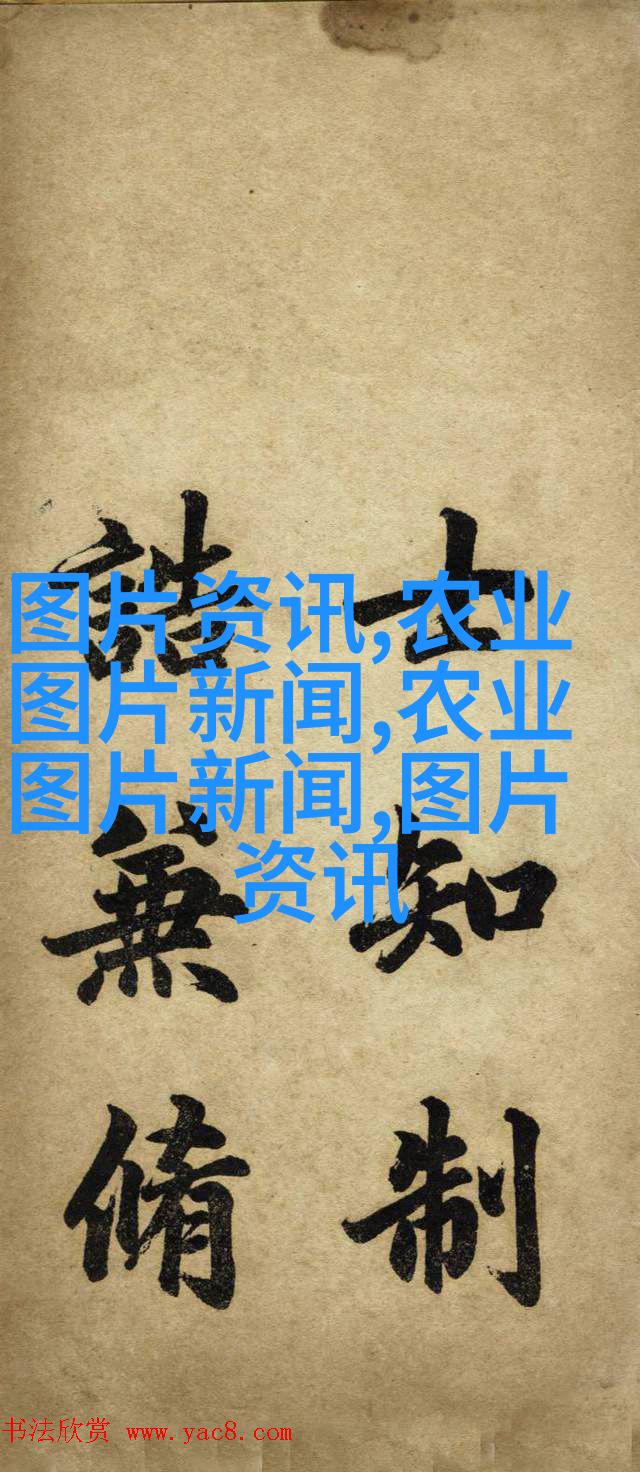 图片资讯,农业
图片新闻,农业
图片新闻,图片
资讯
士知制
誥兼脩
书法欣赏 www.yac8.com